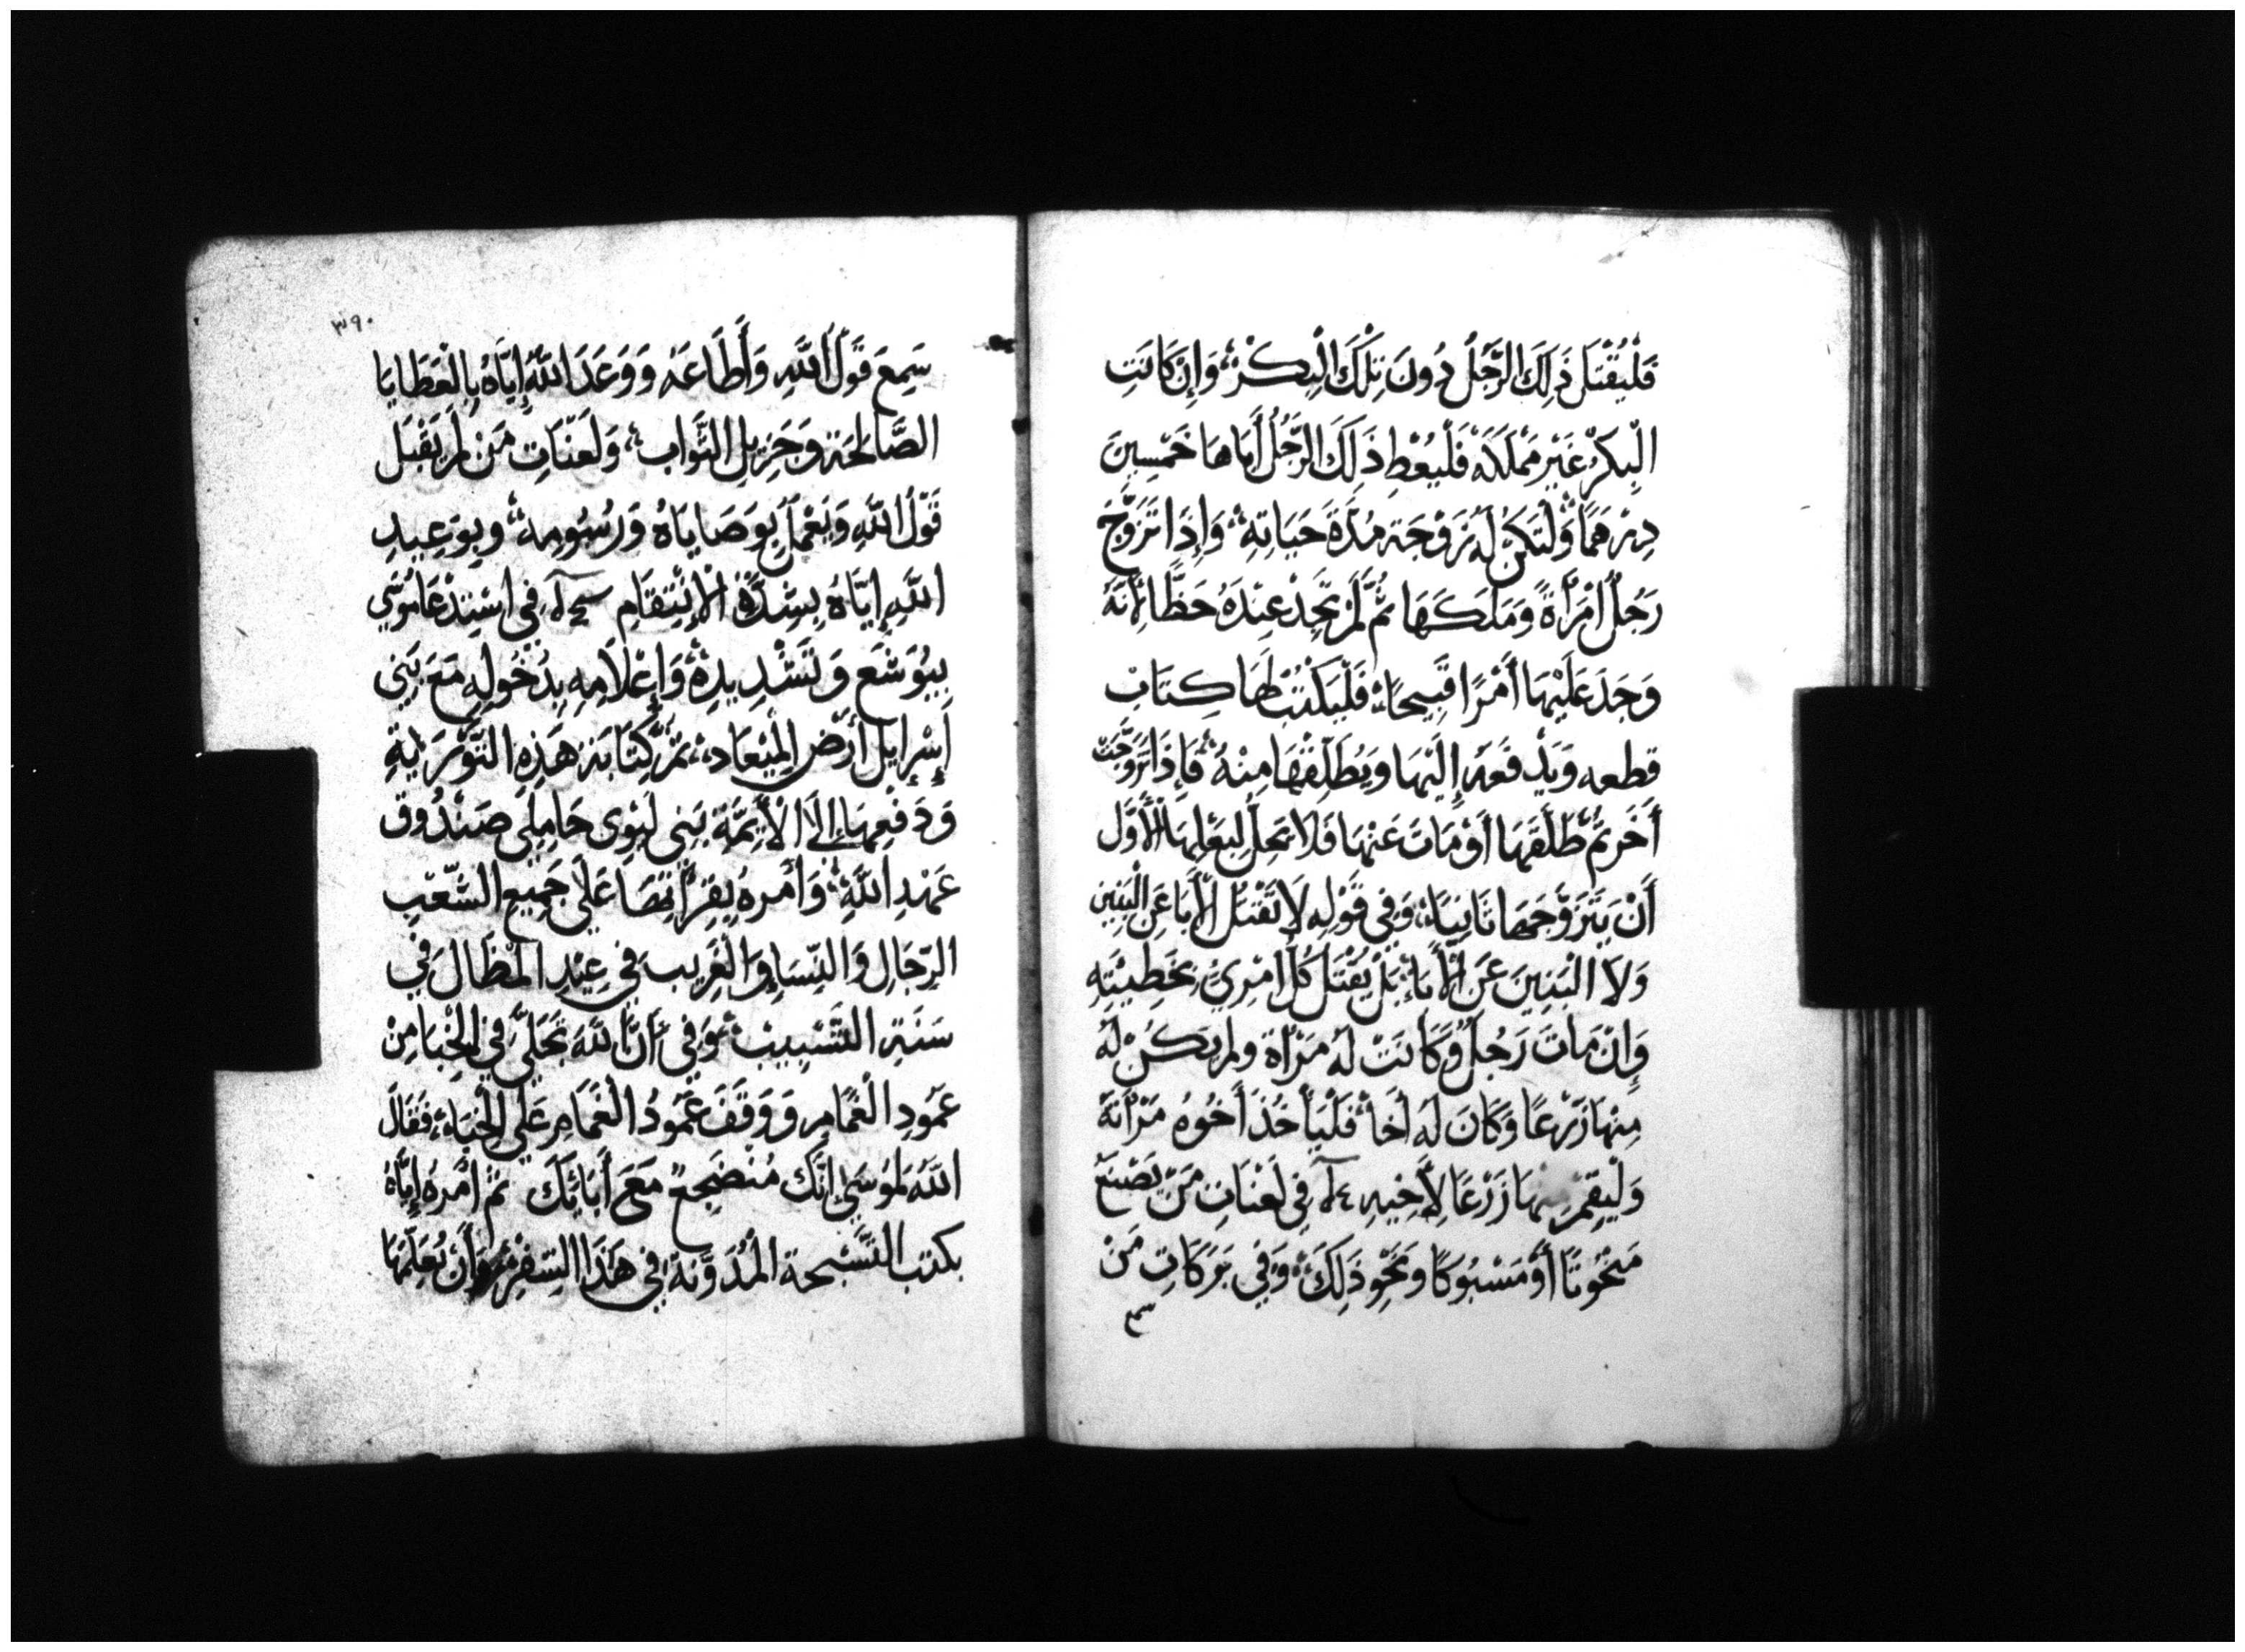 فَلْيُقْتَل ذَلِكَ الرَّجُلُ دُونَ تِلْكَ الْبِكْرِ، وَإِن كَانَتِ
الْبِكْرُ غَيْر مَمْلَكَه فَلْيُعْطِ ذَلِكَ الرَّجُلُ أَبَاهَا خَمْسِينَ
دِرْهَمًا وَلْتَكُنْ لَهُ زَوْجَة مُدَّةَ حَيَاتِهِ، وَإِذَا تَزَوَّجَ
رَجُلٌ امْرَأَةً وَمَلَكَهَا ثُمَّ لَمْ تَجِدْ عِنْدَهُ حَظًّا لِأَنَّهُ
وَجَدَ عَلَيْهَا أَمْرًا قَبِيحًا، فَلْيَكْتُبْ لَهَا كِتَابَ
قطعه وَيَدْفَعَهُ إِلَيْهَا وَيُطَلِّقْهَا مِنْهُ، فَإِذَا تَزَوَّجَتْ
أَخَر ثُمَّ طَلَّقَهَا أَوْ مَاتَ عَنْهَا فَلَا يَحِلُّ لِبَعْلِهَا الْأَوَّل
أَنْ يَتَزَوَّجَهَا ثَانِيًا، وَفِي قَوْلِهِ لَا تُقْتَلُ الْأَبَا عَنِ الْبَنِين
وَلَا الْبَنِينَ عَن الْأَبَاءِ بَلْ يُقْتَل كُلُّ امْرِئٍ بِخَطِيئَتِهِ
وَإِنْ مَاتَ رَجُلٌ وَكَانَتْ لَهُ مَرْأَة ولم يَكُنْ لَهُ
مِنْهَا زَرْعًا وَكَانَ لَهُ أَخًا فَلْيَأْخُذ أَخُوهُ مَرْأَتَهُ
وَلْيُقِمْ مِنْهَا زَرْعًا لِأَخِيهِ في لَعَنَاتِ مَنْ يَصْنَعُ
مَنْحُوتًا أَوْ مَسْبُوكًا وَنَحْوِ ذَلِكَ، وَفِي بَرَكَاتِ مَنْ
سم
٣٩٠
سَمِعَ قَوْلَ اللَّهِ وَأَطَاعَهُ وَوَعَدَ اللَّهُ إِيَّاهُ بِالْعَطَايَا
الصَّالِحَة وَجَزِيلِ الثَّوَاب، وَلَعَنَاتِ مَنْ لَمْ يَقْبَل
قَوْلَ اللَّهِ وَيَعْمَلْ بِوَصَايَاهُ وَرُسُومِهِ، وبِوَعِيدِ
اللَّهِ إِيَّاهُ بِشِدَّةِ الْإِنْتِقَامِ في اسْتِدْعَا مُوسَي
بيُوشَع وَتَشْدِيدِهِ، وَإِعْلَامِهِ بِدُخُولِهِ مَعَ بَنِي
إِسْرَايِل أَرْضَ الْمِيْعَاد، ثُمَّ كِتَابَة هَذِهِ التَّوْرَايَةِ
وَدَفْعِهَا إِلَي الْأَيِمَّة بَنِي لِيوِي حَامِلِي صَنْدُوق
عَهْدِ اللَّهِ، وَأَمرهُ بِقِرَأَتِهَا عَلَي جَمِيعِ الشَّعْبِ
الرِّجَالِ وَالنِّسَا وَالْغَرِيب في عِيْدِ المْظَالِّ في
سَنَةِ التَّسْبِيبْ، وَفِي أَنَّ اللَّهَ تَجَلَّي في الْخِبَا مِنْ
عَمُودِ الْغَمَامِ وَوَقَفَ عَمُودُ الْغَمَامِ عَلَي الْخِبَاء، فَقَالَ
اللَّهُ لِمُوسَي إِنَّكَ مُنْضَجِعٌ مَعَ أَبَائِكَ ثُمَّ أَمْرَهُ إِيَّاهُ
بكتب التَّسْبِحة الْمُدَوَّنَة في هَذَا السِّفْرِ وَأَنْ يُعَلِّمَهَا